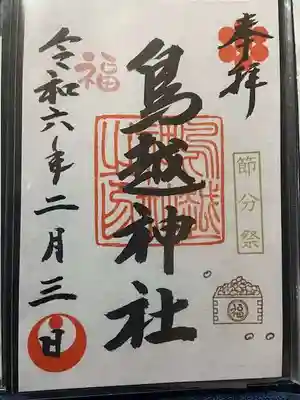 奉拝
節分祭
福
鳥越神社
福
令和六年二月三日